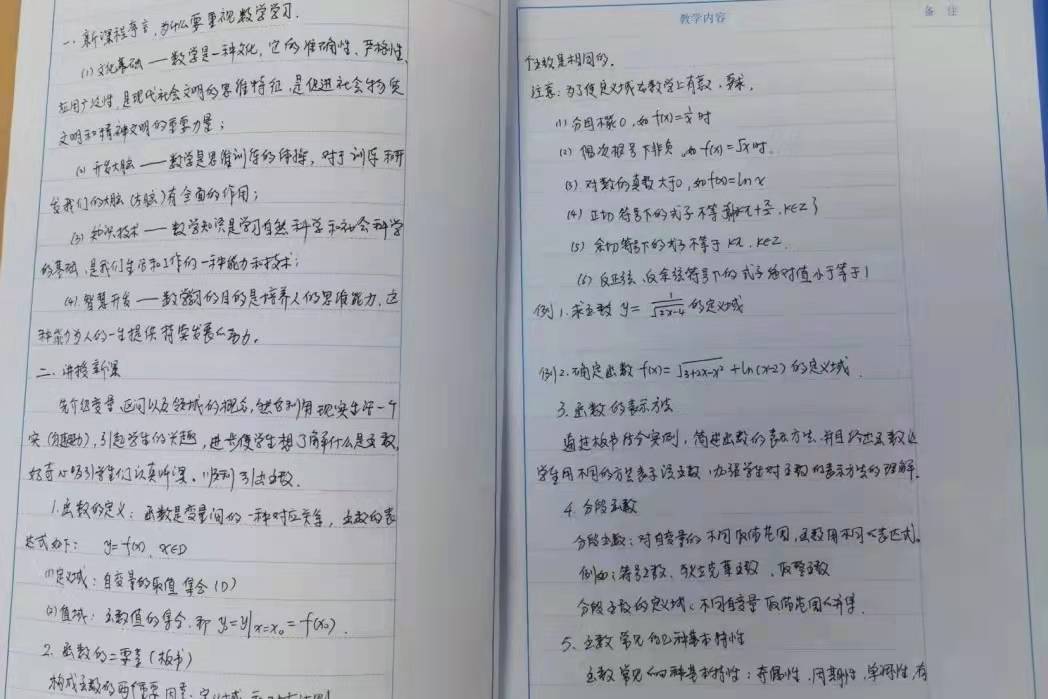 一、新课程序言，为什么要重视数学学习.
(1) 文化基础——数学是一种文化，它的准确性、严格性、
应用广泛性，是现代社会文明的思维特征，是促进社会物质
文明和精神文明的重要力量；
(2) 开发大脑——数学是思维训练的体操，对于训练和开
发我们的大脑（左脑）有全面的作用；
(3) 知识技术——数学知识是学习自然科学和社会科学
的基础，是我们生活和工作的一种能力和技术；
(4). 智慧开发——数学学习的目的是培养人的思维能力，这
种能力为人的一生提供持续发展的动力。
二、讲授新课
先介绍变量、区间以及领域的概念，然后利用现实生活一个
实，引起学生的兴趣，进一步使学生想了解什么是函数，
好奇心吸引学生们认真听课，引出函数.
1. 函数的定义：函数是变量间的一种对应关系，函数的表
达式如下： y=f(x)，x∈D
(1) 定义域：自变量的取值集合（D）
(2) 值域：函数值的集合，即 y₀=y|x=x₀=f(x₀).
2. 函数的二要素（板书）
构成函数的两个要因素：定义域
教学内容
备 注
个函数是相同的.
注意：为了使定义域在数学上有意义，要求.
(1) 分母不能0，如 f(x)=1/x 时
(2) 偶次根号下非负，如 f(x)=√x 时.
(3) 对数的真数大于0，如 f(x)=ln x
(4) 正切符号下的式子不等 kπ+π/2，k∈Z
(5) 余切符号下的式子不等于 kπ，k∈Z.
(6) 反正弦、反余弦符号下的式子绝对值小于等于1
例1. 求函数 y=1/√(2x-4) 的定义域
例2. 确定函数 f(x)=√(3+2x-x²)+ln(x-2) 的定义域.
3. 函数的表示方法
通过板书几个实例，简述函数的表示方法，并且
学生用不同的方法表示该函数，加强学生对函数的表示方法的理解.
4. 分段函数
分段函数：对自变量的不同取值范围，函数用不同的表达式。
例如：符号函数、狄立克莱函数、取整函数
分段函数的定义域：不同自变量取值范围的并集.
5. 函数常见的四种基本特性
函数常见的四种基本特性：奇偶性、周期性、单调性、有